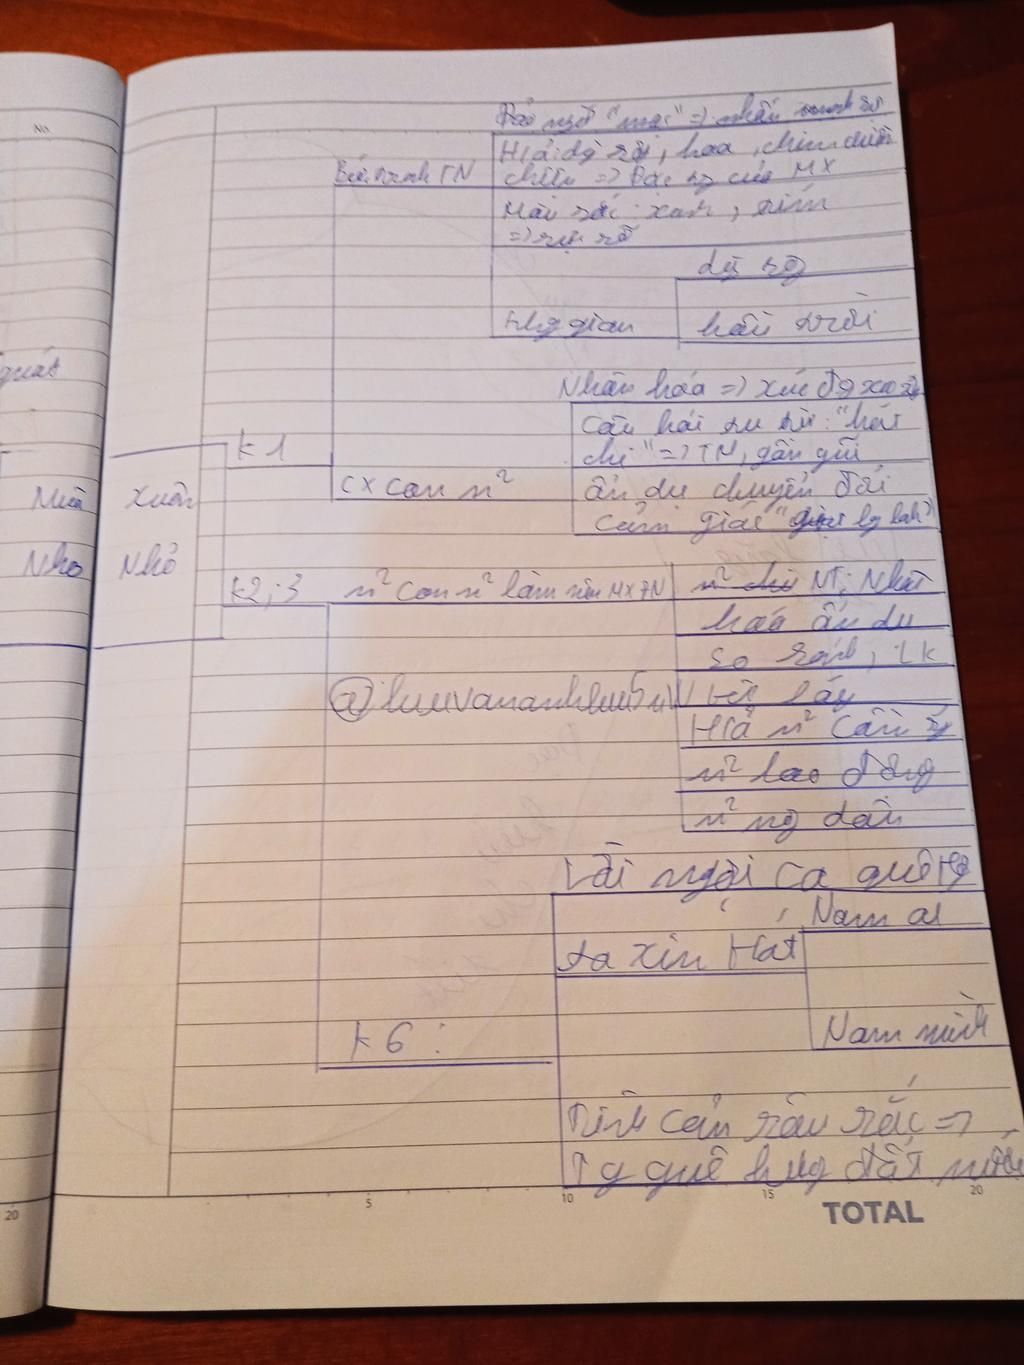 No.
Đảo ngữ "mọc" => nhấn mạnh sự
H/ả: dg sôg, hoa, chim chiền
chiện => Đặc tg của MX
Bức tranh TN
Màu sắc: xanh, tím
=> rực rỡ
dg sôg
khg gian
bầu trời
Nhân hoá => xúc độg xao
Câu hỏi tu từ: "hót
chi" => TN, gần gũi
quát
k1
cx con n²
ẩn dụ chuyển đổi
cảm giác "giọt lg lanh"
Mùa xuân
Nho Nhỏ
k2;3
n² con n² làm nên MX ĐN
NT: Nhân
hoá ẩn du
so sánh, Lk
@luuvananhluu5
từ láy
H/ả n² cầm
n² lao động
n² ng dân
Lời ngợi ca quê Hg
ta xin Hát
Nam ai
Nam mình
k6:
Tình cảm sâu sắc =>
Ty quê hưg đất nước
20
5
10
15
20
TOTAL